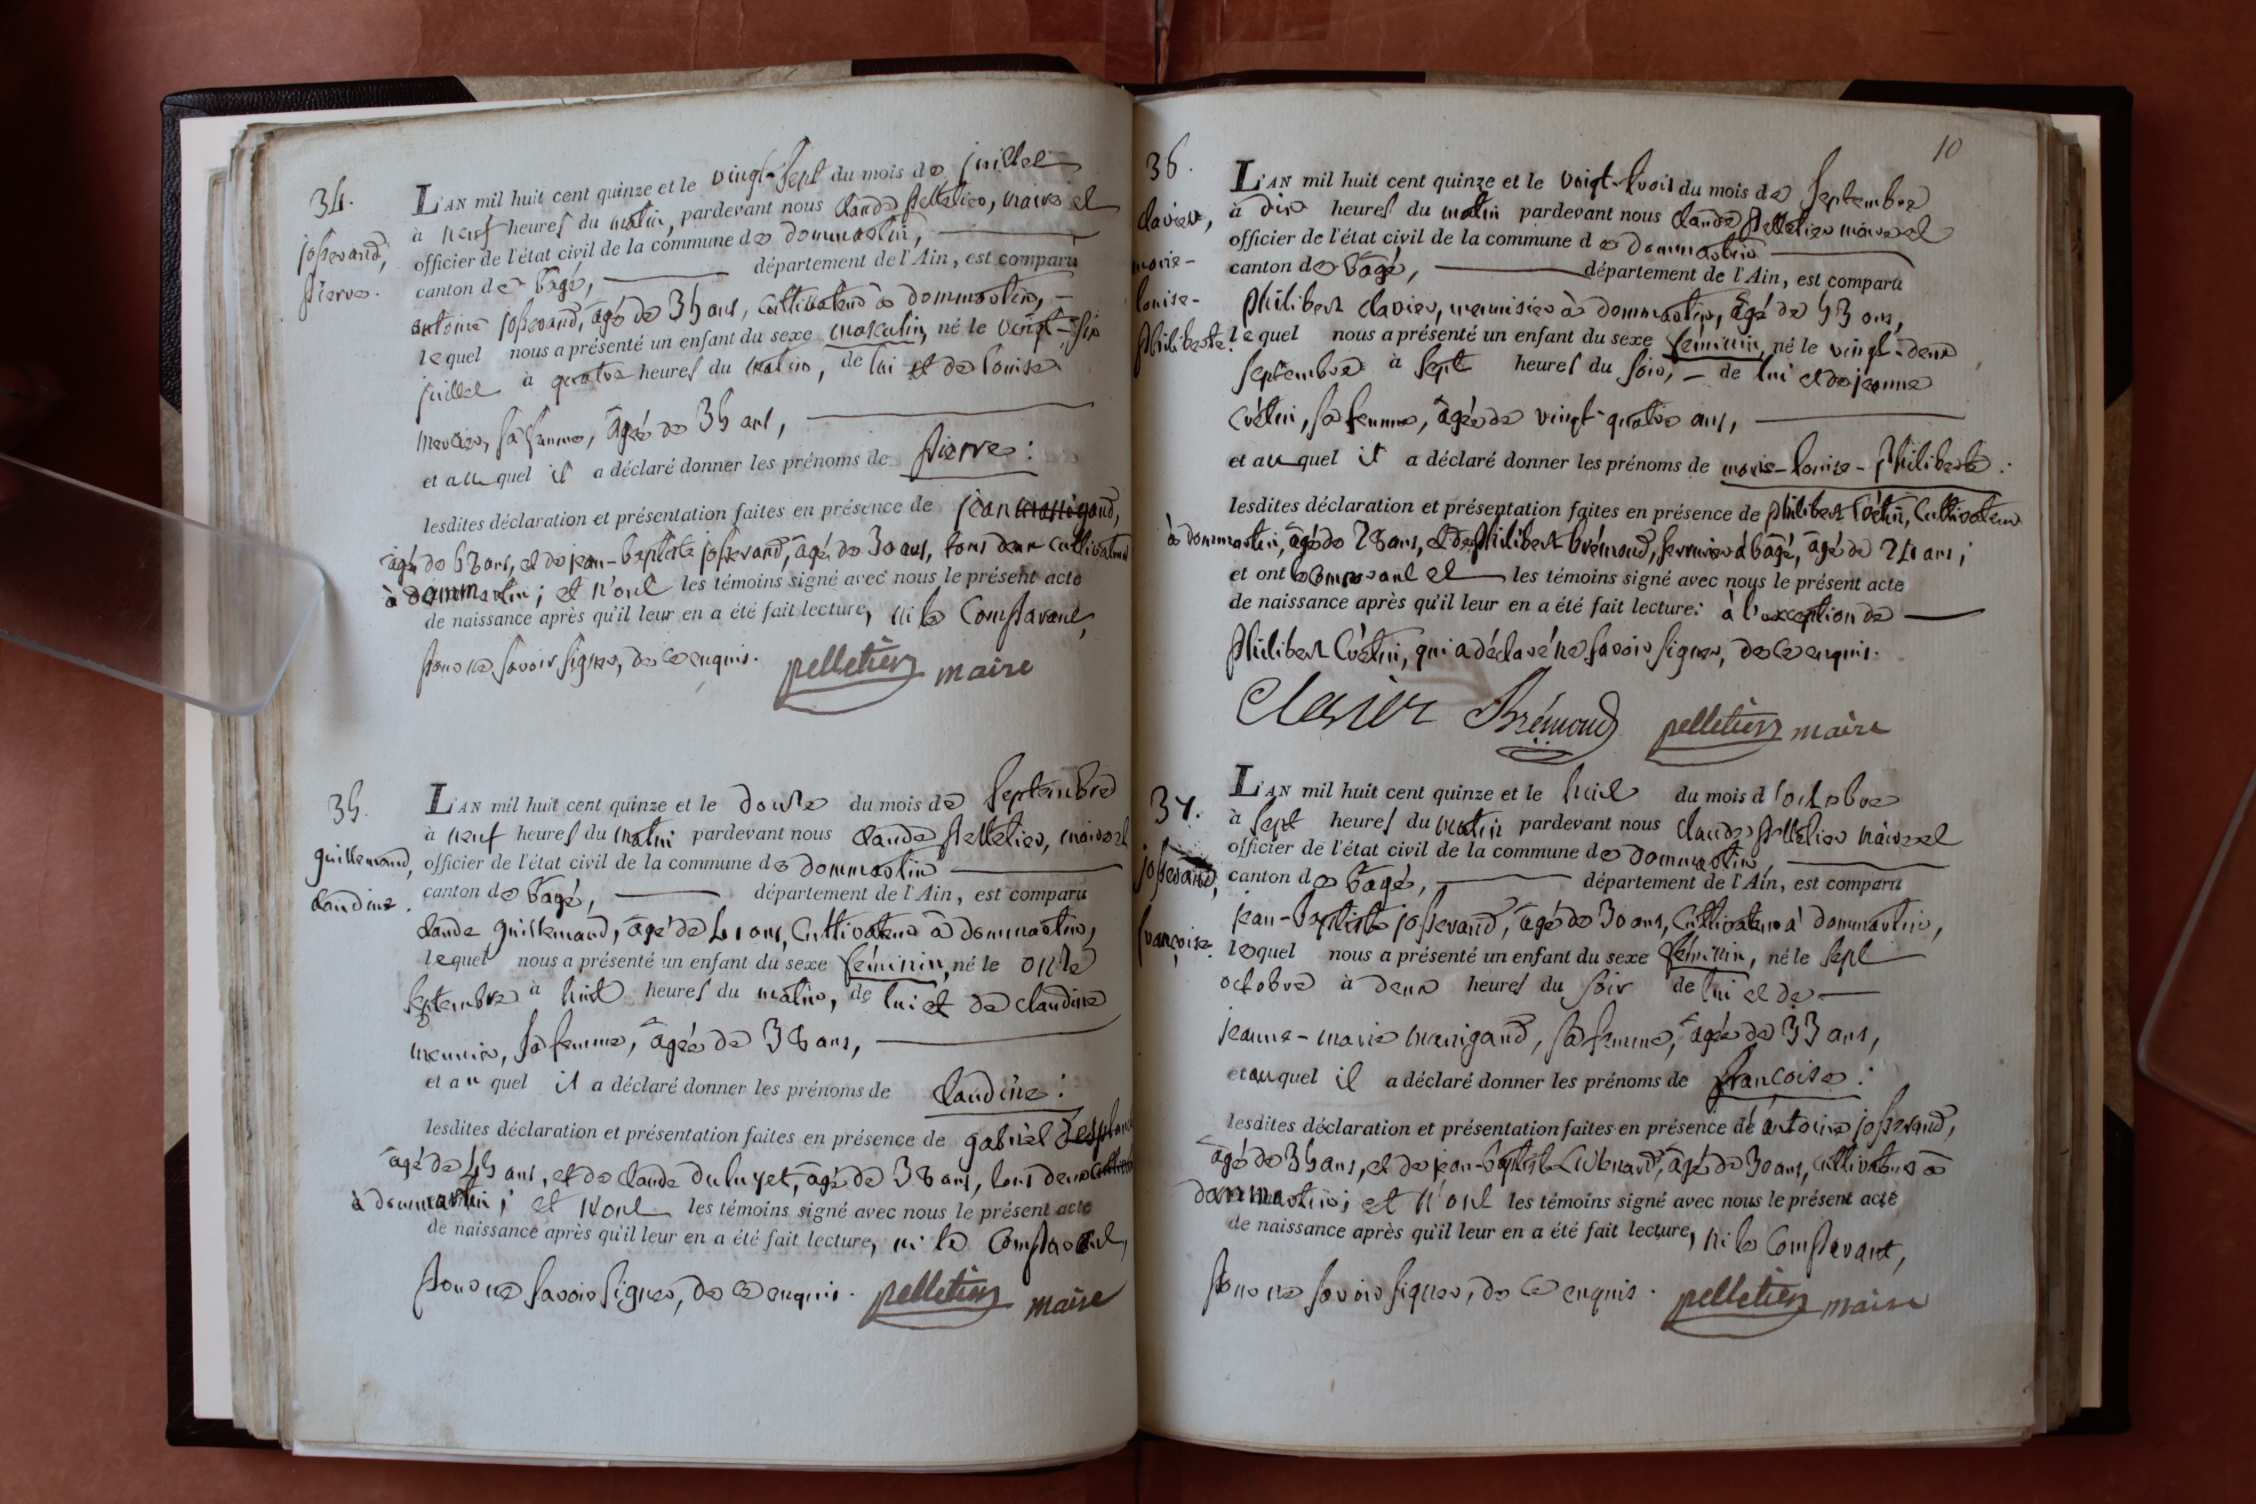 34.
josserand,
pierre.
L'AN mil huit cent quinze et le vingt-sept du mois de juillet
à neuf heures du matin, pardevant nous claude pelletier, maire et
officier de l'état civil de la commune de dommartin,
canton de Bâgé, département de l'Ain, est comparu
antoine josserand, âgé de 35 ans, cultivateur à dommartin,
lequel nous a présenté un enfant du sexe masculin, né le vingt-six
juillet à quatre heures du matin, de lui et de louise
mercier, sa femme, âgée de 35 ans,
et auquel il a déclaré donner les prénoms de pierre :
lesdites déclaration et présentation faites en présence de jean
âgé de 63 ans, et de jean-baptiste josserand, âgé de 30 ans, tous deux cultivateurs
à dommartin ; et n'ont les témoins signé avec nous le présent acte
de naissance après qu'il leur en a été fait lecture, ni le comparant,
pour ne savoir signer, de ce enquis. pelletier maire
35.
guillemaud,
claudine.
L'AN mil huit cent quinze et le douze du mois de septembre
à neuf heures du matin pardevant nous claude pelletier, maire et
officier de l'état civil de la commune de dommartin
canton de Bâgé, département de l'Ain, est comparu
claude guillemaud, âgé de 41 ans, cultivateur à dommartin,
lequel nous a présenté un enfant du sexe féminin, né le onze
septembre à huit heures du matin, de lui et de claudine
meunier, sa femme, âgée de 38 ans,
et auquel il a déclaré donner les prénoms de claudine :
lesdites déclaration et présentation faites en présence de gabriel
âgé de 45 ans, et de claude duluyet, âgé de 38 ans, tous deux cultivateurs
à dommartin ; et n'ont les témoins signé avec nous le présent acte
de naissance après qu'il leur en a été fait lecture, ni le comparant,
pour ne savoir signer, de ce enquis. pelletier maire
10
36.
clavier,
marie-
louise-
philiberte.
L'AN mil huit cent quinze et le vingt-trois du mois de septembre
à dix heures du matin pardevant nous claude pelletier maire et
officier de l'état civil de la commune de dommartin
canton de Bâgé, département de l'Ain, est comparu
philibert clavier, menuisier à dommartin, âgé de 43 ans,
lequel nous a présenté un enfant du sexe féminin, né le vingt-deux
septembre à sept heures du soir, de lui et de jeanne
Crétin, sa femme, âgée de vingt-quatre ans,
et auquel il a déclaré donner les prénoms de marie-louise-philiberte :
lesdites déclaration et présentation faites en présence de philibert Crétin, cultivateur
à dommartin, âgé de 28 ans, et de philibert brémond, serrurier à bâgé, âgé de 24 ans ;
et ont le comparant et les témoins signé avec nous le présent acte
de naissance après qu'il leur en a été fait lecture: à l'exception de
philibert Crétin, qui a déclaré ne savoir signer, de ce enquis.
Clavier Brémond pelletier maire
37.
josserand,
françoise.
L'AN mil huit cent quinze et le huit du mois d'octobre
à sept heures du matin pardevant nous claude pelletier maire et
officier de l'état civil de la commune de dommartin,
canton de Bâgé, département de l'Ain, est comparu
jean-baptiste josserand, âgé de 30 ans, cultivateur à dommartin,
lequel nous a présenté un enfant du sexe féminin, né le sept
octobre à deux heures du soir de lui et de
jeanne-marie manigand, sa femme, âgée de 33 ans,
et auquel il a déclaré donner les prénoms de françoise :
lesdites déclaration et présentation faites en présence de antoine josserand,
âgé de 35 ans, et de jean-baptiste âgé de 30 ans, cultivateurs à
dommartin ; et n'ont les témoins signé avec nous le présent acte
de naissance après qu'il leur en a été fait lecture, ni le comparant,
pour ne savoir signer, de ce enquis. pelletier maire